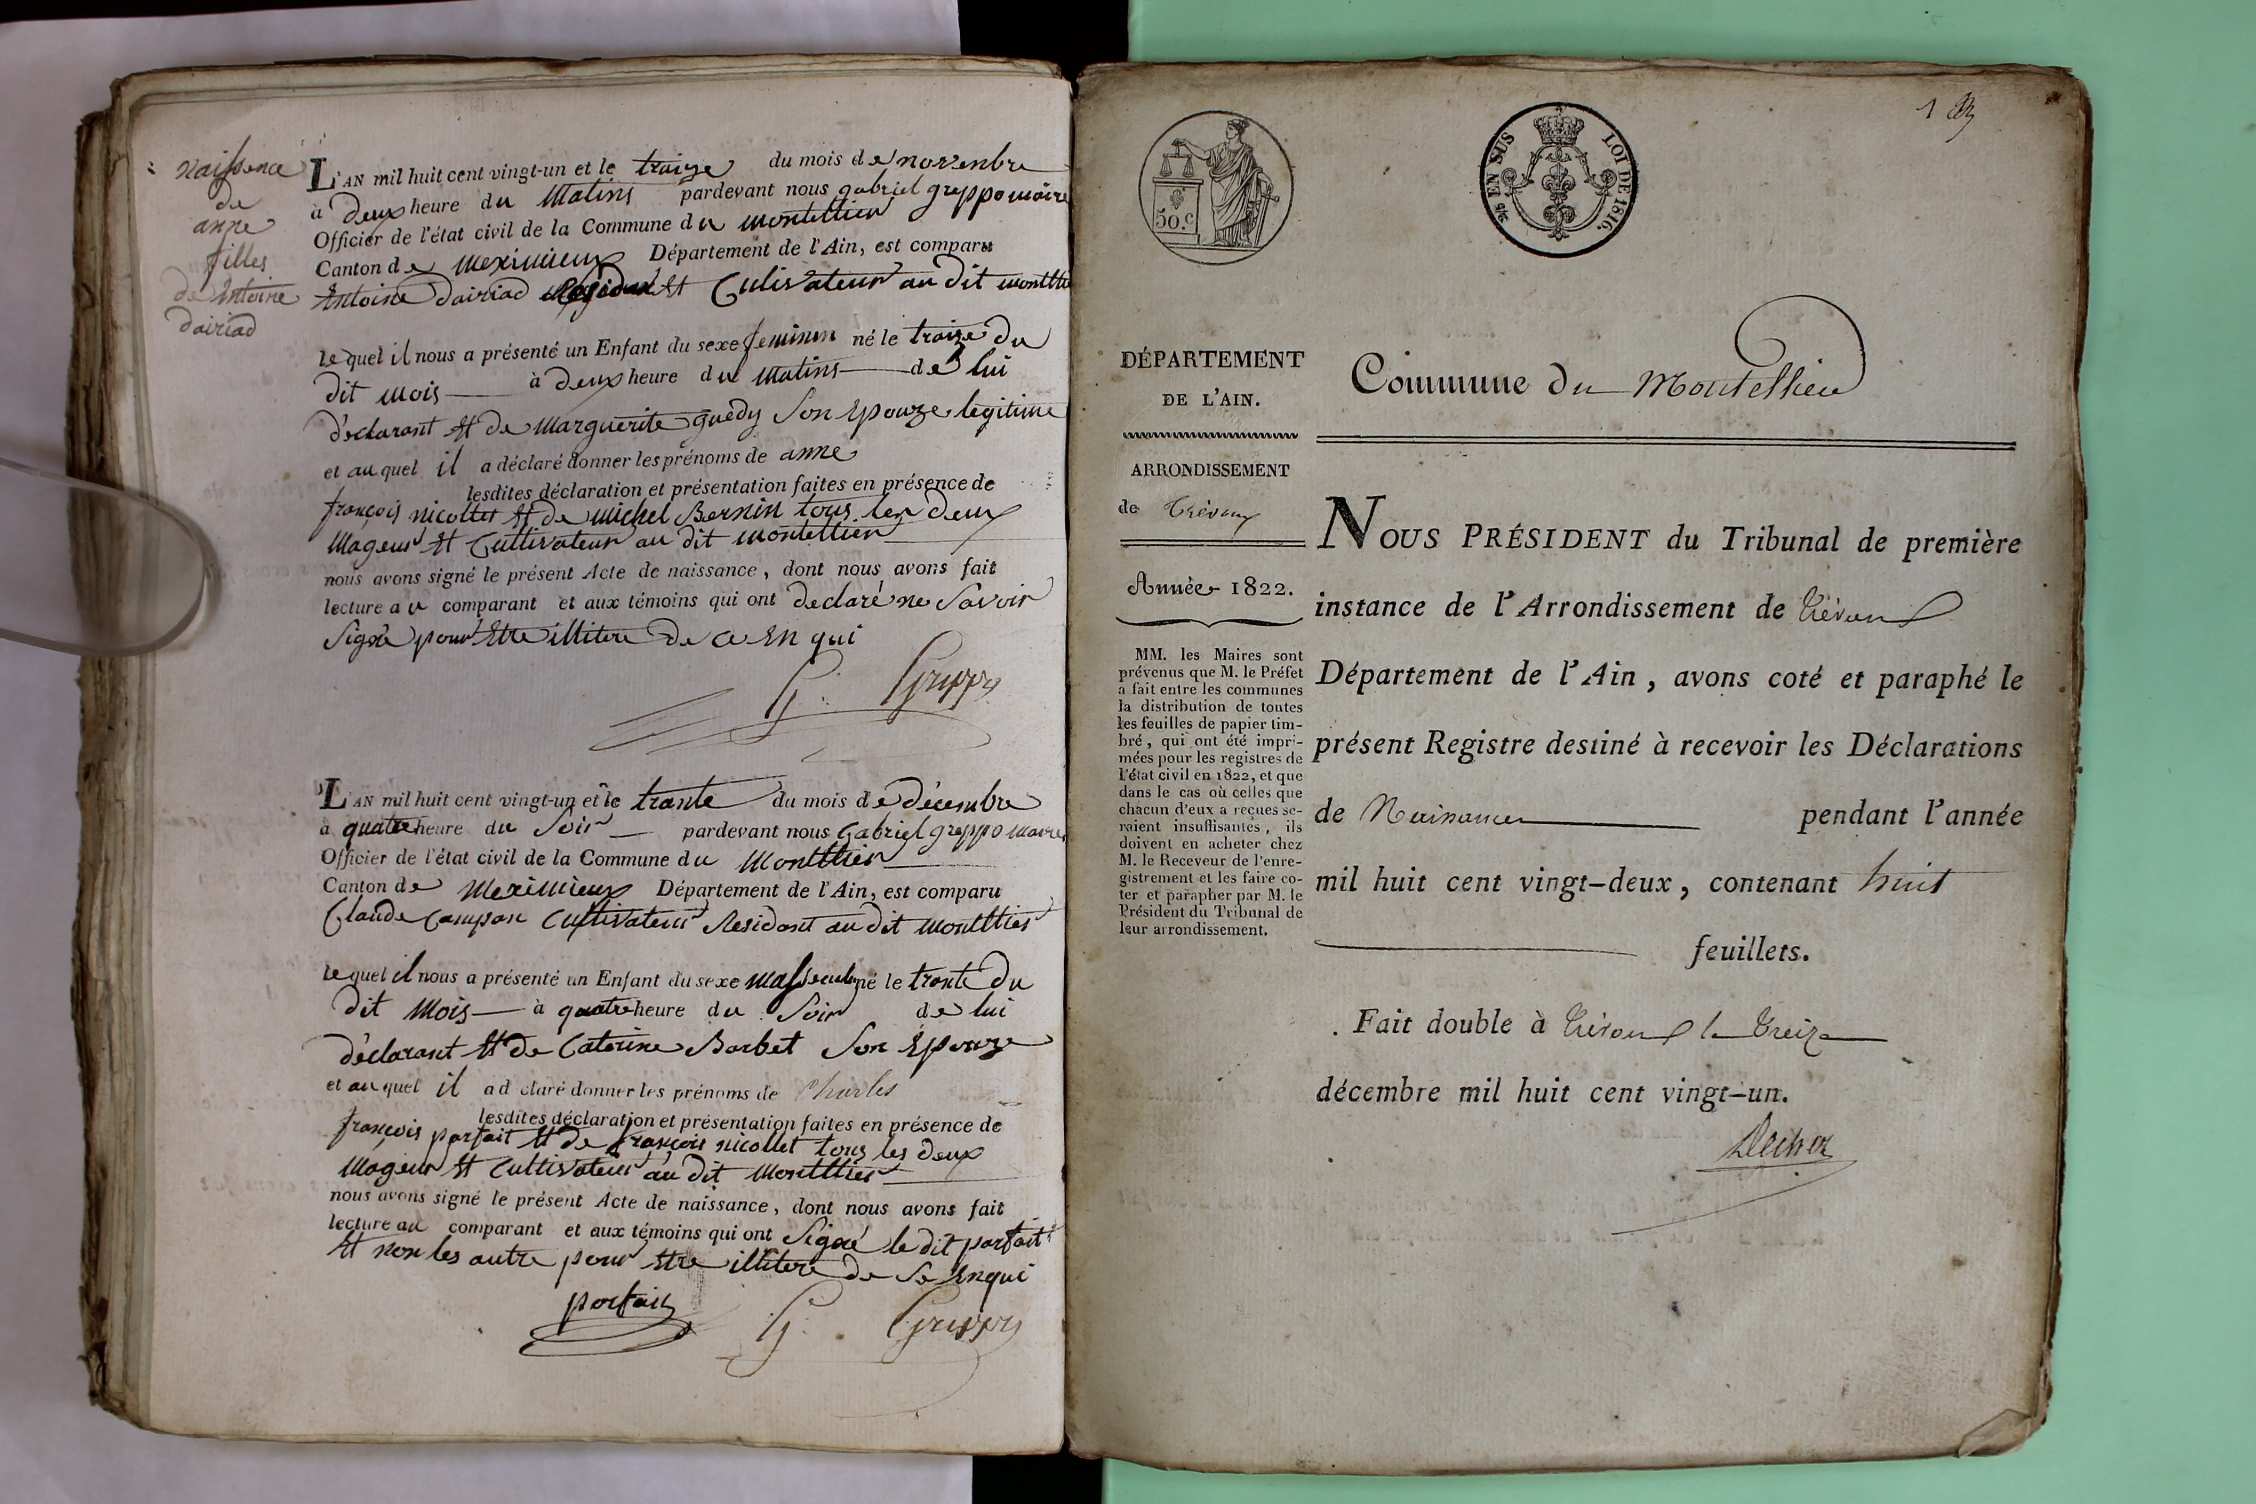 naissence
de
anne
filles
de Antoine
dairiad
L'AN mil huit cent vingt-un et le traize du mois de novenbre
à deux heure du Matins pardevant nous gabriel greppo maire
Officier de l'état civil de la Commune du montellier
Canton de meximieux Département de l'Ain, est comparu
Antoine dairiad Et Culivateur au dit montellie
lequel il nous a présenté un Enfant du sexe feminin né le traize du
dit mois à deux heure du Matins de lui
déclarant Et de Marguerite guedy Son Epouze legitime
et auquel il a déclaré donner les prénoms de anne
lesdites déclaration et présentation faites en présence de
françois nicollet Et de michel Bernin tous les deux
Mageur Et Cultivateur au dit montellier
nous avons signé le présent Acte de naissance, dont nous avons fait
lecture au comparant et aux témoins qui ont declaré ne Savoir
Signé pour Etre illitere de ce En qui
G. Greppo
L'AN mil huit cent vingt-un et le trante du mois de décembre
à quatre heure du Soir pardevant nous Gabriel greppo maire
Officier de l'état civil de la Commune du Montllier
Canton de Meximieux Département de l'Ain, est comparu
Claude Campan Cultivateur Residant au dit montllier
lequel il nous a présenté un Enfant du sexe Massculen né le trante du
dit Mois à quatre heure du Soir de lui
déclarant Et de Caterine Barbet Son Epouze
et auquel il a d claré donner les prénoms de Charles
lesdites déclaration et présentation faites en présence de
françois parfait Et de françois nicollet tous les deux
Mageur Et Cultivateur au dit Montllier
nous avons signé le présent Acte de naissance, dont nous avons fait
lecture au comparant et aux témoins qui ont Signé le dit parfait
Et non les autre pour Etre illitere de Se Enqui
parfait G. Greppo
50.C
EN SUS LOI DE 1816.
1
DÉPARTEMENT
DE L'AIN.
ARRONDISSEMENT
de Trévoux
Année 1822.
MM. les Maires sont
prévenus que M. le Préfet
a fait entre les communes
la distribution de toutes
les feuilles de papier tim-
bré, qui ont été impri-
mées pour les registres de
l'état civil en 1822, et que
dans le cas où celles que
chacun d'eux a reçues se-
raient insuffisantes, ils
doivent en acheter chez
M. le Receveur de l'enre-
gistrement et les faire co-
ter et parapher par M. le
Président du Tribunal de
leur arrondissement.
Commune du Montellier
NOUS PRÉSIDENT du Tribunal de première
instance de l'Arrondissement de Trévoux
Département de l'Ain, avons coté et paraphé le
présent Registre destiné à recevoir les Déclarations
de Naissances pendant l'année
mil huit cent vingt-deux, contenant huit
feuillets.
Fait double à Trévoux le Treize
décembre mil huit cent vingt-un.